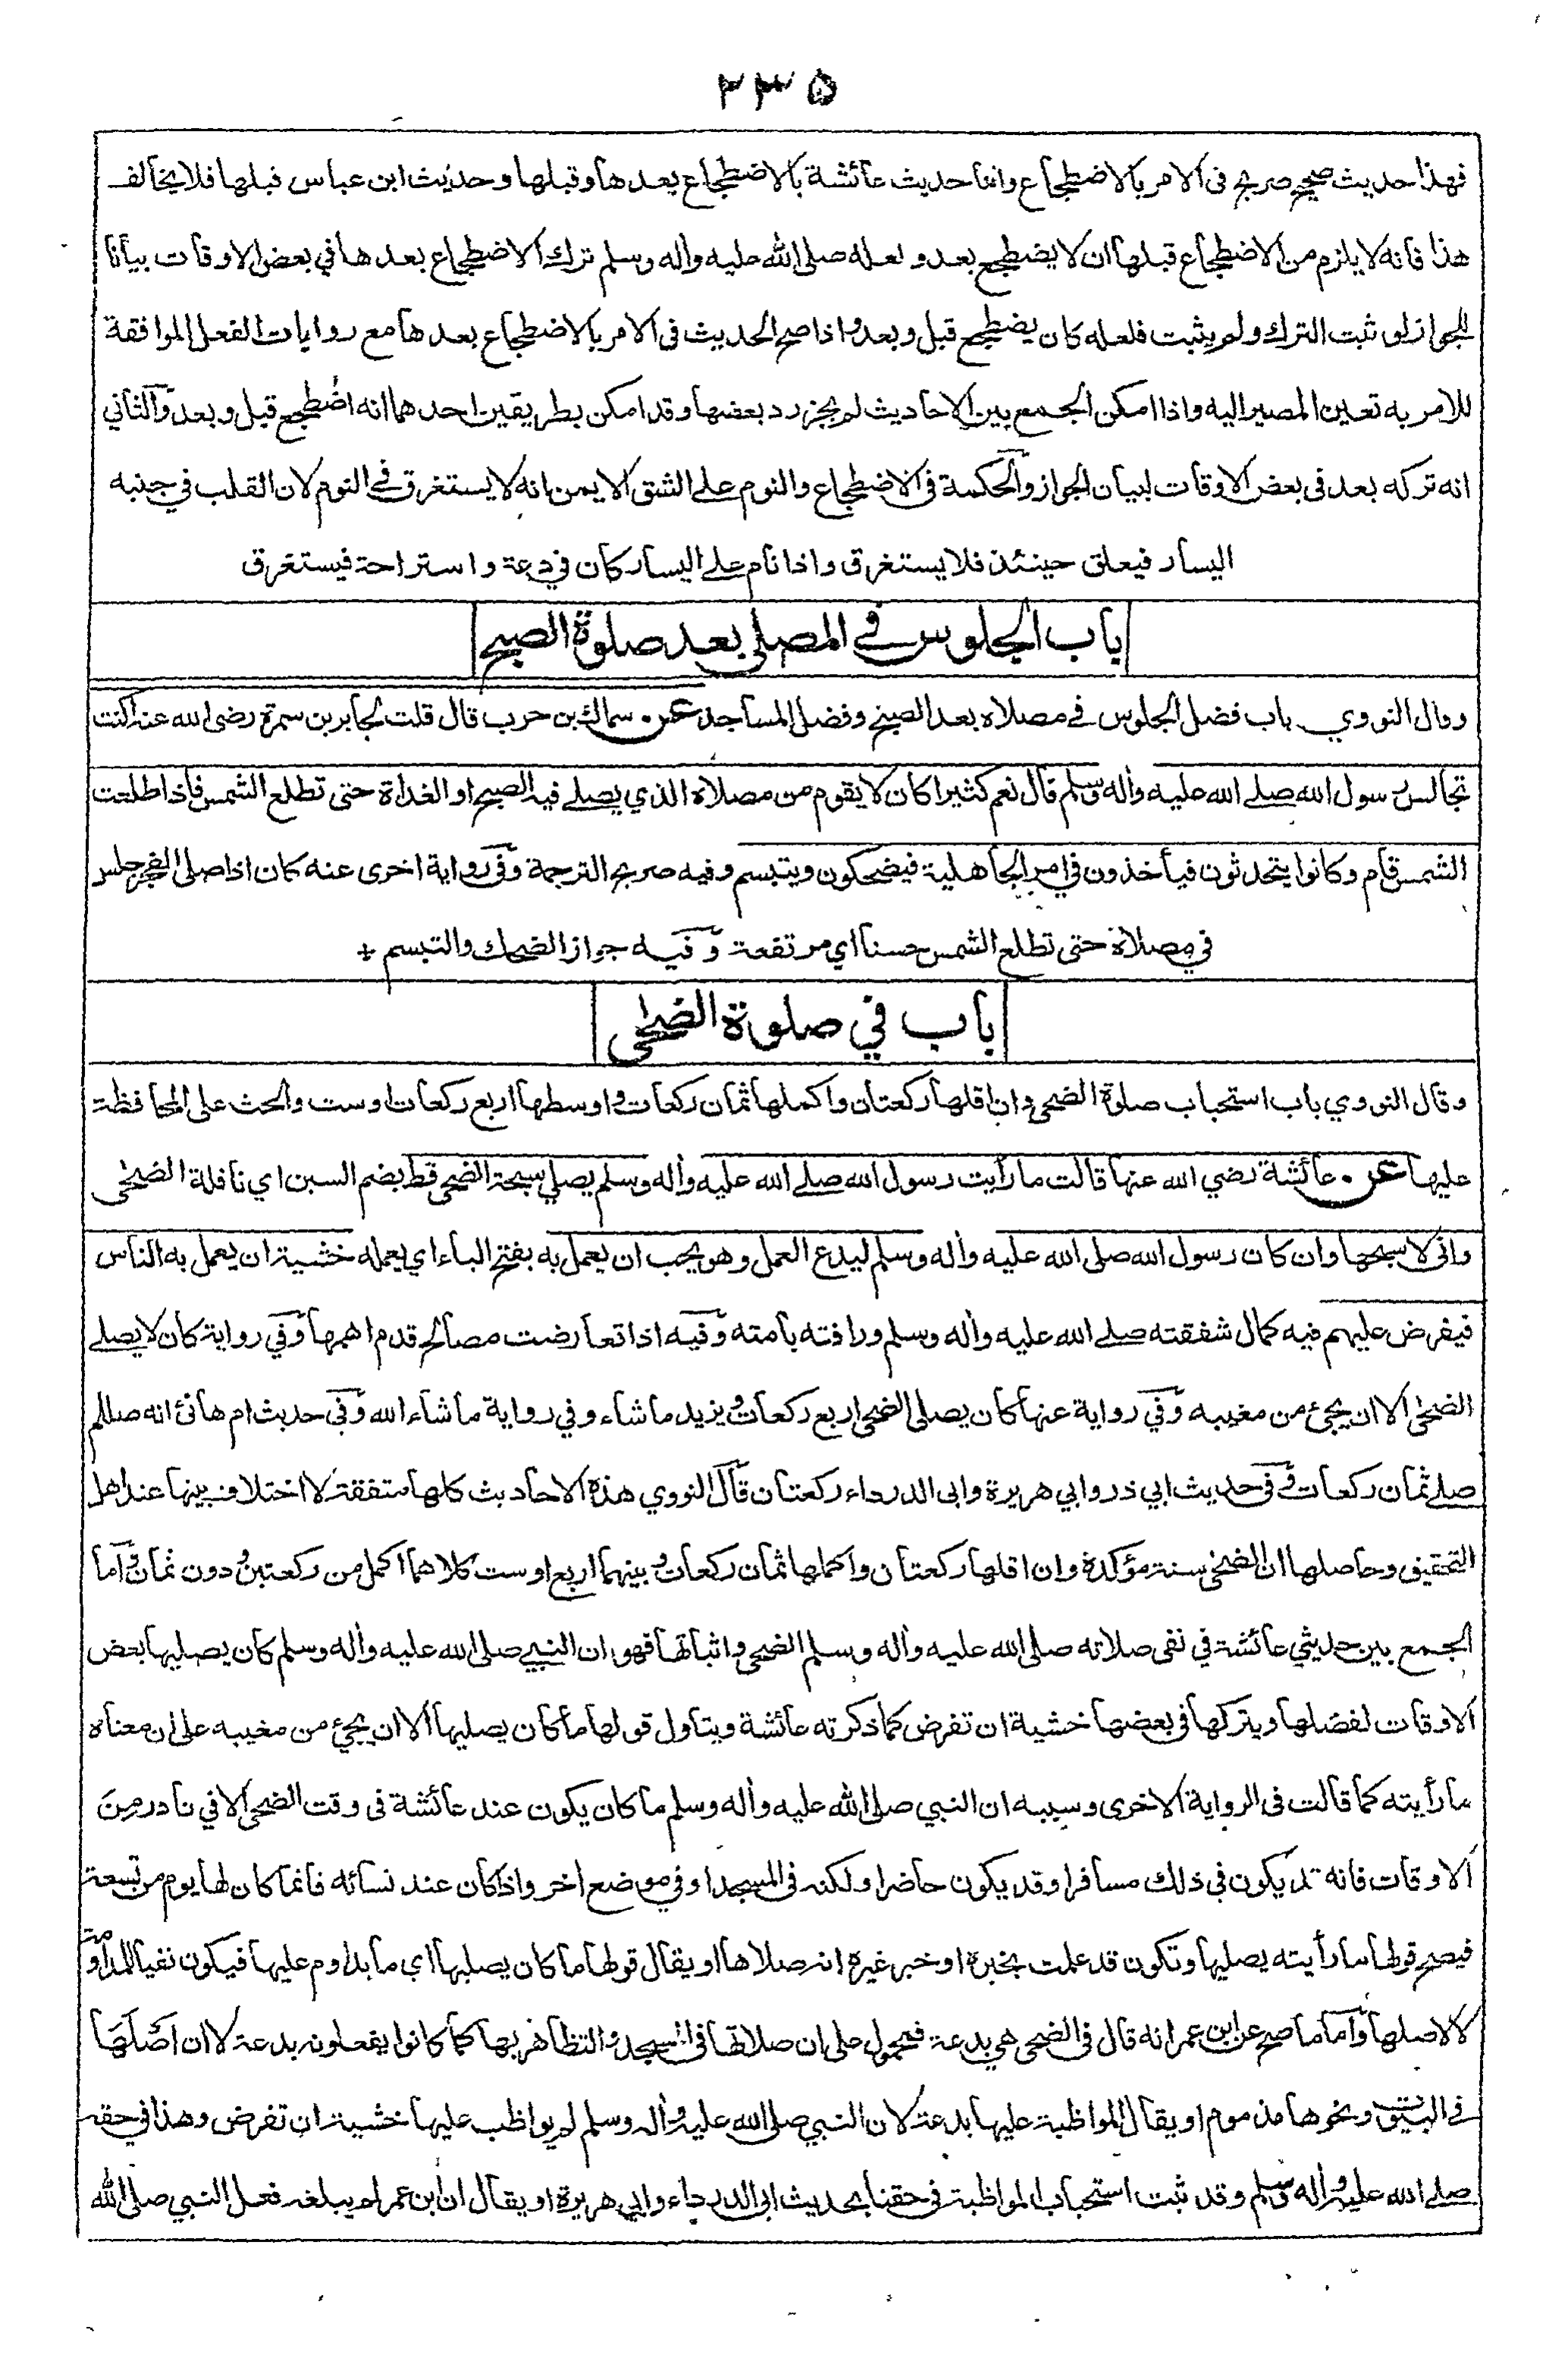 ٢٣٥
فهذا حديث صحيح صريح فى الامر بالاضطجاع واما حديث عائشة بالاضطجاع بعدها وقبلها وحديث ابن عباس قبلها فلا يخالف
هذا فانه لا يلزم من الاضطجاع قبلها ان لا يضطجع بعد ولعله صلى الله عليه وأله وسلم ترك الاضطجاع بعدها في بعض الاوقات بيانا
للجواز لو ثبت الترك ولم يثبت فلعله كان يضطجع قبل وبعد واذا صح الحديث فى الامر بالاضطجاع بعدها مع روايات الفعل الموافقة
للامر به تعين المصير اليه واذا امكن الجمع بين الاحاديث لم يجز رد بعضها وقد امكن بطريقين احدهما انه اضطجع قبل وبعد والثاني
انه تركه بعد فى بعض الاوقات لبيان الجواز والحكمة فى الاضطجاع والنوم على الشق الايمن انه لا يستغرق في النوم لان القلب في جنبه
اليسار فيعلق حينئذ فلا يستغرق واذا نام على اليسار كان في دعة واستراحة فيستغرق
باب الجلوس في المصلى بعد صلوة الصبح
وقال النووي باب فضل الجلوس في مصلاه بعد الصبح وفضل المساجد عن سماك بن حرب قال قلت لجابر بن سمرة رضى الله عنه اكنت
تجالس رسول الله صلى الله عليه وأله وسلم قال نعم كثيرا كان لا يقوم من مصلاه الذي يصلى فيه الصبح او الغداة حتى تطلع الشمس فاذا طلعت
الشمس قام وكانوا يتحدثون فيأخذون في امر الجاهلية فيضحكون ويتبسم وفيه صريح الترجمة وفى رواية اخرى عنه كان اذا صلى الفجر جلس
في مصلاة حتى تطلع الشمس حسنا اي مرتفعة وفيه جواز الضحك والتبسم +
باب في صلوة الضحى
وقال النووي باب استحباب صلوة الضحى وان اقلها ركعتان واكملها ثمان ركعات واوسطها اربع ركعات او ست والحث على المحافظة
عليها عن عائشة رضي الله عنها قالت ما رأيت رسول الله صلى الله عليه وأله وسلم يصلى سبحة الضحى قط بضم السين اي نافلة الضحى
وانى لاسبحها وان كان رسول الله صلى الله عليه وأله وسلم ليدع العمل وهو يحب ان يعمل به بفتح الياء اي يعمله خشية ان يعمل به الناس
فيفرض عليهم فيه كمال شفقته صلى الله عليه وأله وسلم ورافته بامته وفيه اذا تعارضت مصالح قدم اهمها وفي رواية كان لا يصلى
الضحى الا ان يجئ من مغيبه وفي رواية عنها كان يصلى الضحى اربع ركعات ويزيد ما شاء وفي رواية ما شاء الله وفى حديث ام هانئ انه صللم
صلى ثمان ركعات وفى حديث ابي ذر وابي هريرة وابى الدرداء ركعتان قال النووي هذه الاحاديث كلها متفقة لا اختلاف بينها عند اهل
التحقيق وحاصلها ان الضحى سنة مؤكدة وان اقلها ركعتان واكملها ثمان ركعات وبينهما اربع او ست كلاهما اكمل من ركعتين ودون ثمان واما
الجمع بين حديثي عائشة في نفى صلاته صلى الله عليه وأله وسلم الضحى واثباتها فهو ان النبي صلى الله عليه وأله وسلم كان يصليها بعض
الاوقات لفضلها ويتركها فى بعضها خشية ان تفرض كما ذكرته عائشة ويتاول قولها ما كان يصليها الا ان يجئ من مغيبه على ان معناه
ما رأيته كما قالت فى الرواية الاخرى وسببه ان النبي صلى الله عليه وأله وسلم ما كان يكون عند عائشة فى وقت الضحى الا في نادر من
الاوقات فانه قد يكون في ذلك مسافرا وقد يكون حاضرا ولكنه فى المسجد او في موضع اخر واذا كان عند نسائه فانما كان لها يوم من تسعة
فيصح قولها ما رأيته يصليها وتكون قد علمت بخبره او خبر غيره انه صلاها او يقال قولها ما كان يصليها اي ما يداوم عليها فيكون نفيا للمداومة
لا لاصلها واما ما صح عن ابن عمر انه قال فى الضحى هي بدعة فمحمول على ان صلاتها فى المسجد والتظاهر بها كما كانوا يفعلونه بدعة لا ان اصلها
في البيوت ونحوها مذموم او يقال المواظبة عليها بدعة لان النبي صلى الله عليه وأله وسلم لم يواظب عليها خشية ان تفرض وهذا في حقه
صلى الله عليه وأله وسلم وقد ثبت استحباب المواظبة فى حقنا بحديث ابى الدرداء وابي هريرة او يقال ان ابن عمر لم يبلغه فعل النبي صلى الله